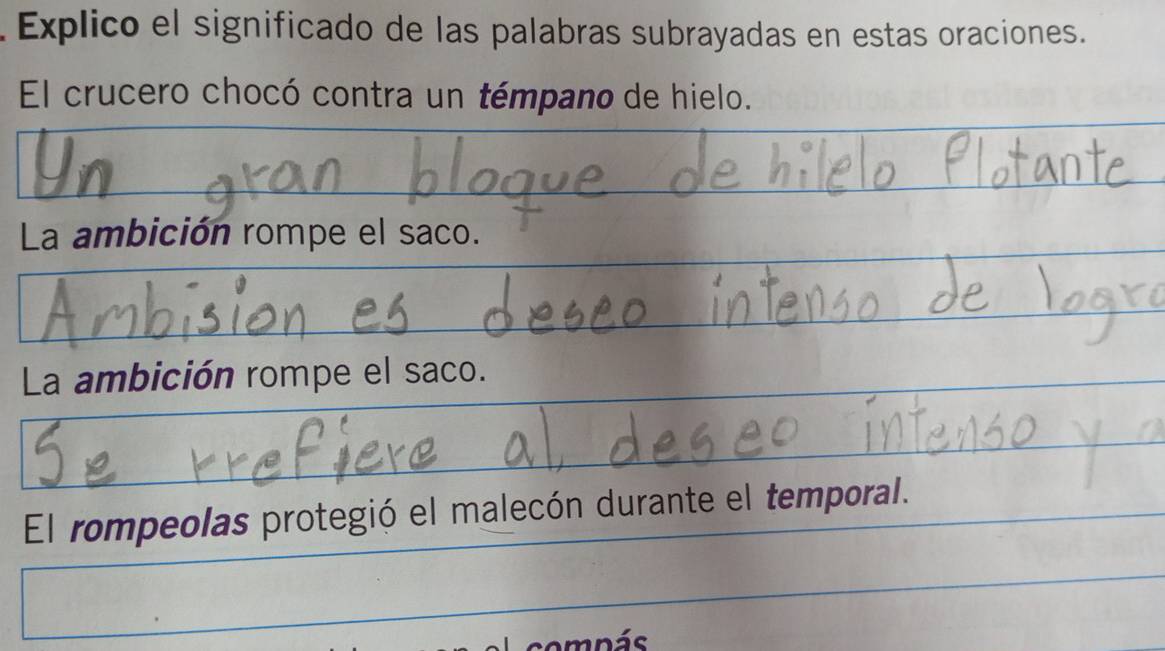 . Explico el significado de las palabras subrayadas en estas oraciones.
El crucero chocó contra un témpano de hielo.
Un gran bloque de hilelo flotante
La ambición rompe el saco.
Ambision es deseo intenso de logro
La ambición rompe el saco.
Se rrefiere al deseo intenso y a
El rompeolas protegió el malecón durante el temporal.
el compás